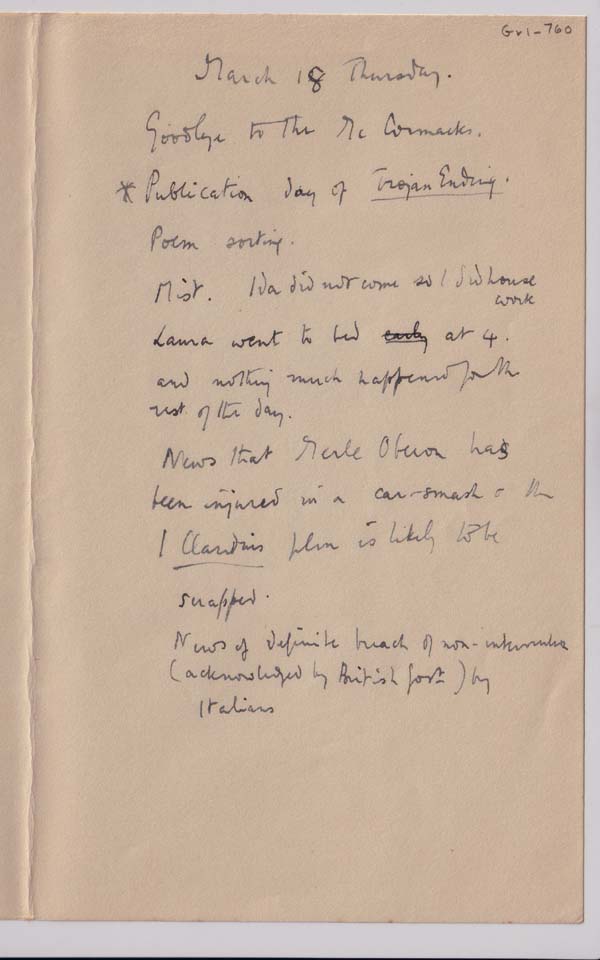 Gv1-760
March 18 Thursday.
Goodbye to the McCormacks.
* Publication day of Trojan Ending.
Poem sorting.
Mist. Ida did not come so I did house
work
Laura went to bed early at 4.
and nothing much happened for the
rest of the day.
News that Merle Oberon has
been injured in a car-smash & the
I Claudius film is likely to be
scrapped.
News of definite breach of non-intervention
(acknowledged by British Govt) by
Italians